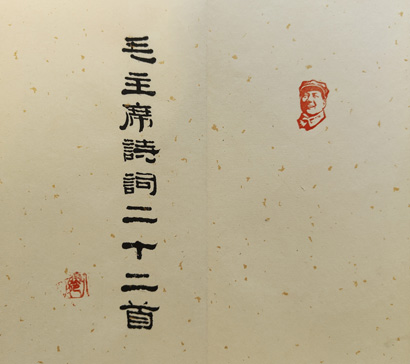 毛主席詩詞二十二首